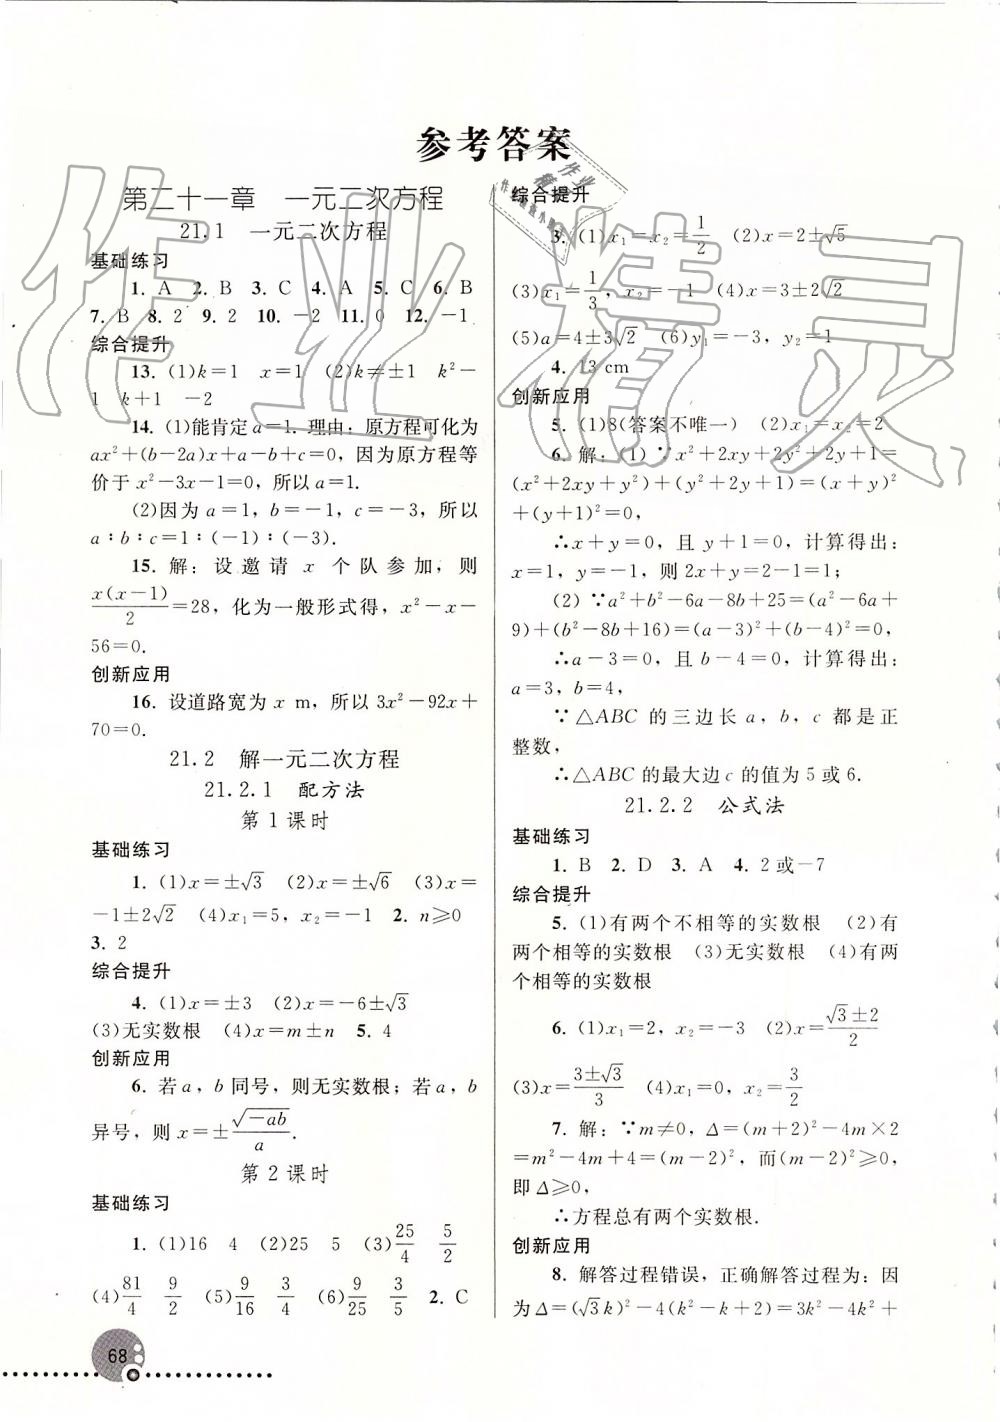 参考答案
第二十一章　一元二次方程
21.1　一元二次方程
基础练习
1. A　2. B　3. C　4. A　5. C　6. B
7. B　8. 2　9. 2　10. －2　11. 0　12. －1
综合提升
13. (1)k＝1　x＝1　(2)k≠±1　k²－
1　k＋1　－2
14. (1)能肯定a＝1. 理由：原方程可化为
ax²＋(b－2a)x＋a－b＋c＝0，因为原方程等
价于x²－3x－1＝0，所以a＝1.
(2)因为a＝1，b＝－1，c＝－3，所以
a∶b∶c＝1∶(－1)∶(－3).
15. 解：设邀请 x 个队参加，则
x(x－1)/2＝28，化为一般形式得，x²－x－
56＝0.
创新应用
16. 设道路宽为x m，所以3x²－92x＋
70＝0.
21.2　解一元二次方程
21.2.1　配方法
第1课时
基础练习
1. (1)x＝±√3　(2)x＝±√6　(3)x＝
－1±2√2　(4)x₁＝5，x₂＝－1　2. n≥0
3. 2
综合提升
4. (1)x＝±3　(2)x＝－6±√3
(3)无实数根　(4)x＝m±n　5. 4
创新应用
6. 若a，b同号，则无实数根；若a，b
异号，则x＝±√(－ab)/a.
第2课时
基础练习
1. (1)16　4　(2)25　5　(3)25/4　5/2
(4)81/4　9/2　(5)9/16　3/4　(6)9/25　3/5　2. C
68
综合提升
3. (1)x₁＝x₂＝1/2　(2)x＝2±√5
(3)x₁＝1/3，x₂＝－1　(4)x＝3±2√2
(5)a＝4±3√2　(6)y₁＝－3，y₂＝1
4. 13 cm
创新应用
5. (1)8(答案不唯一)　(2)x₁＝x₂＝2
6. 解：(1)∵x²＋2xy＋2y²＋2y＋1＝
(x²＋2xy＋y²)＋(y²＋2y＋1)＝(x＋y)²
＋(y＋1)²＝0，
∴x＋y＝0，且y＋1＝0，计算得出：
x＝1，y＝－1，则2x＋y＝2－1＝1；
(2)∵a²＋b²－6a－8b＋25＝(a²－6a＋
9)＋(b²－8b＋16)＝(a－3)²＋(b－4)²＝0，
∴a－3＝0，且b－4＝0，计算得出：
a＝3，b＝4，
∵△ABC 的三边长a，b，c 都是正
整数，
∴△ABC的最大边c的值为5或6.
21.2.2　公式法
基础练习
1. B　2. D　3. A　4. 2或－7
综合提升
5. (1)有两个不相等的实数根　(2)有
两个相等的实数根　(3)无实数根　(4)有两
个相等的实数根
6. (1)x₁＝2，x₂＝－3　(2)x＝(√3±2)/2
(3)x＝(3±√3)/3　(4)x₁＝0，x₂＝3/2
7. 解：∵m≠0，Δ＝(m＋2)²－4m×2
＝m²－4m＋4＝(m－2)²，而(m－2)²≥0，
即Δ≥0，
∴方程总有两个实数根.
创新应用
8. 解答过程错误，正确解答过程为：因
为Δ＝(√3k)²－4(k²－k＋2)＝3k²－4k²＋
作业精灵